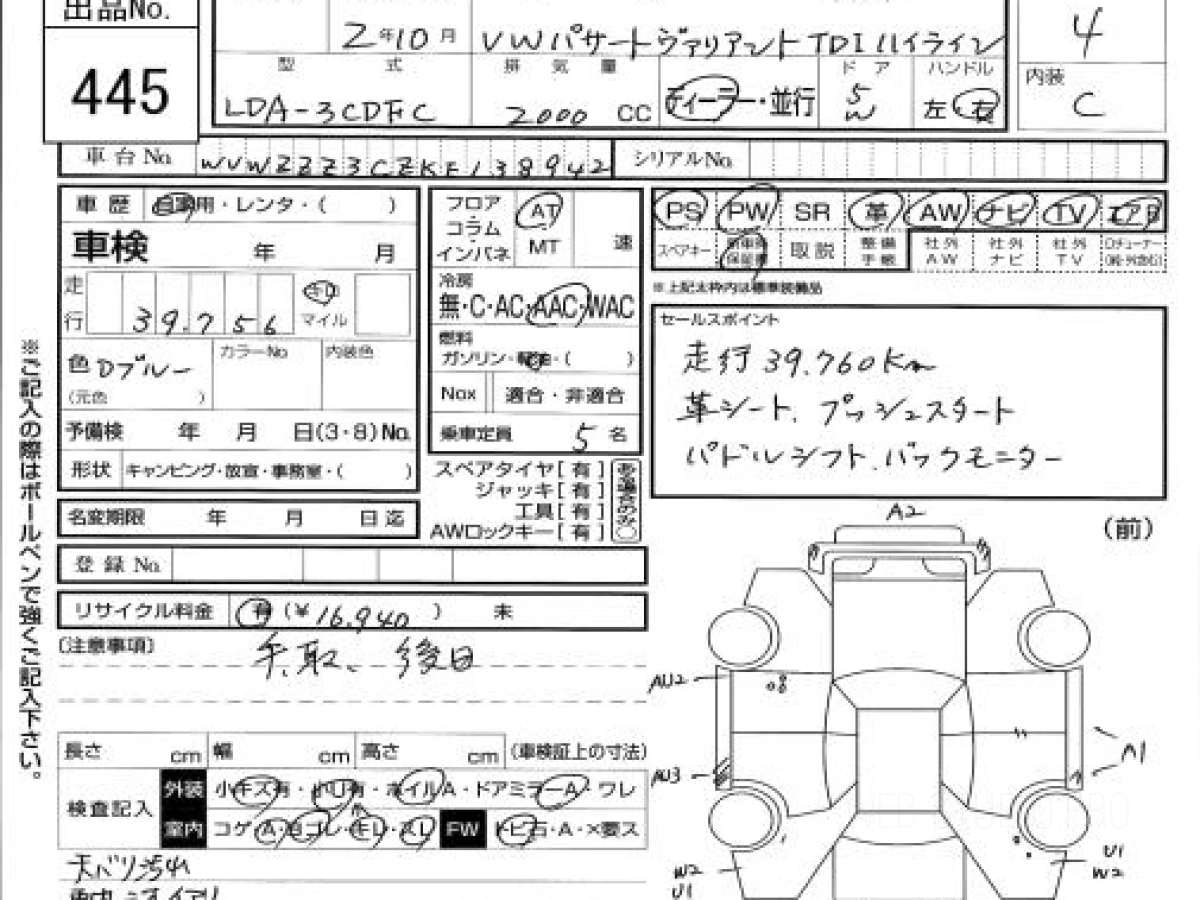 出品No.
2年10月 VWパサートヴァリアントTDIハイライン 4
445
型式 排気量 ドア ハンドル 内装
LDA-3CDFC 2000 CC ディーラー・並行 5W 左・右 C
車台No. WVWZZZ3CZKE138942 シリアルNo.
車歴 自家用・レンタ・( )
フロア コラム インパネ AT MT 速
PS PW SR 革 AW ナビ TV エアB
スペアキー 新車時保証書 取説 整備手帳 社外AW 社外ナビ 社外TV
車検 年 月
※上記太枠内は標準装備品
冷房
無・C・AC・AAC・WAC
走行 39,756 キロ マイル
燃料
ガソリン・軽油・( )
セールスポイント
走行39.760Km
革シート、プッシュスタート
パドルシフト、バックモニター
色 Dブルー カラーNo 内装色
(元色 )
Nox 適合・非適合
予備検 年 月 日(3・8)No.
乗車定員 5名
形状 キャンピング・放宣・事務室・( )
スペアタイヤ[有]
ジャッキ[有]
工具[有]
AWロックキー[有]
ある場合のみ○
名変期限 年 月 日迄
登録No.
リサイクル料金 有(¥16,940) 未
〔注意事項〕
手.取、後日
長さ cm 幅 cm 高さ cm (車検証上の寸法)
検査記入
外装 小キズ有・小U有・ホイルA・ドアミラーA・ワレ
室内 コゲ・A・ヨゴレ・キレ・スレ FW トビ石・A・×要ス
天バリ汚れ
※ご記入の際はボールペンで強くご記入下さい。
A2
(前)
AU2
AU3
A1
W2
U1
U1
W2